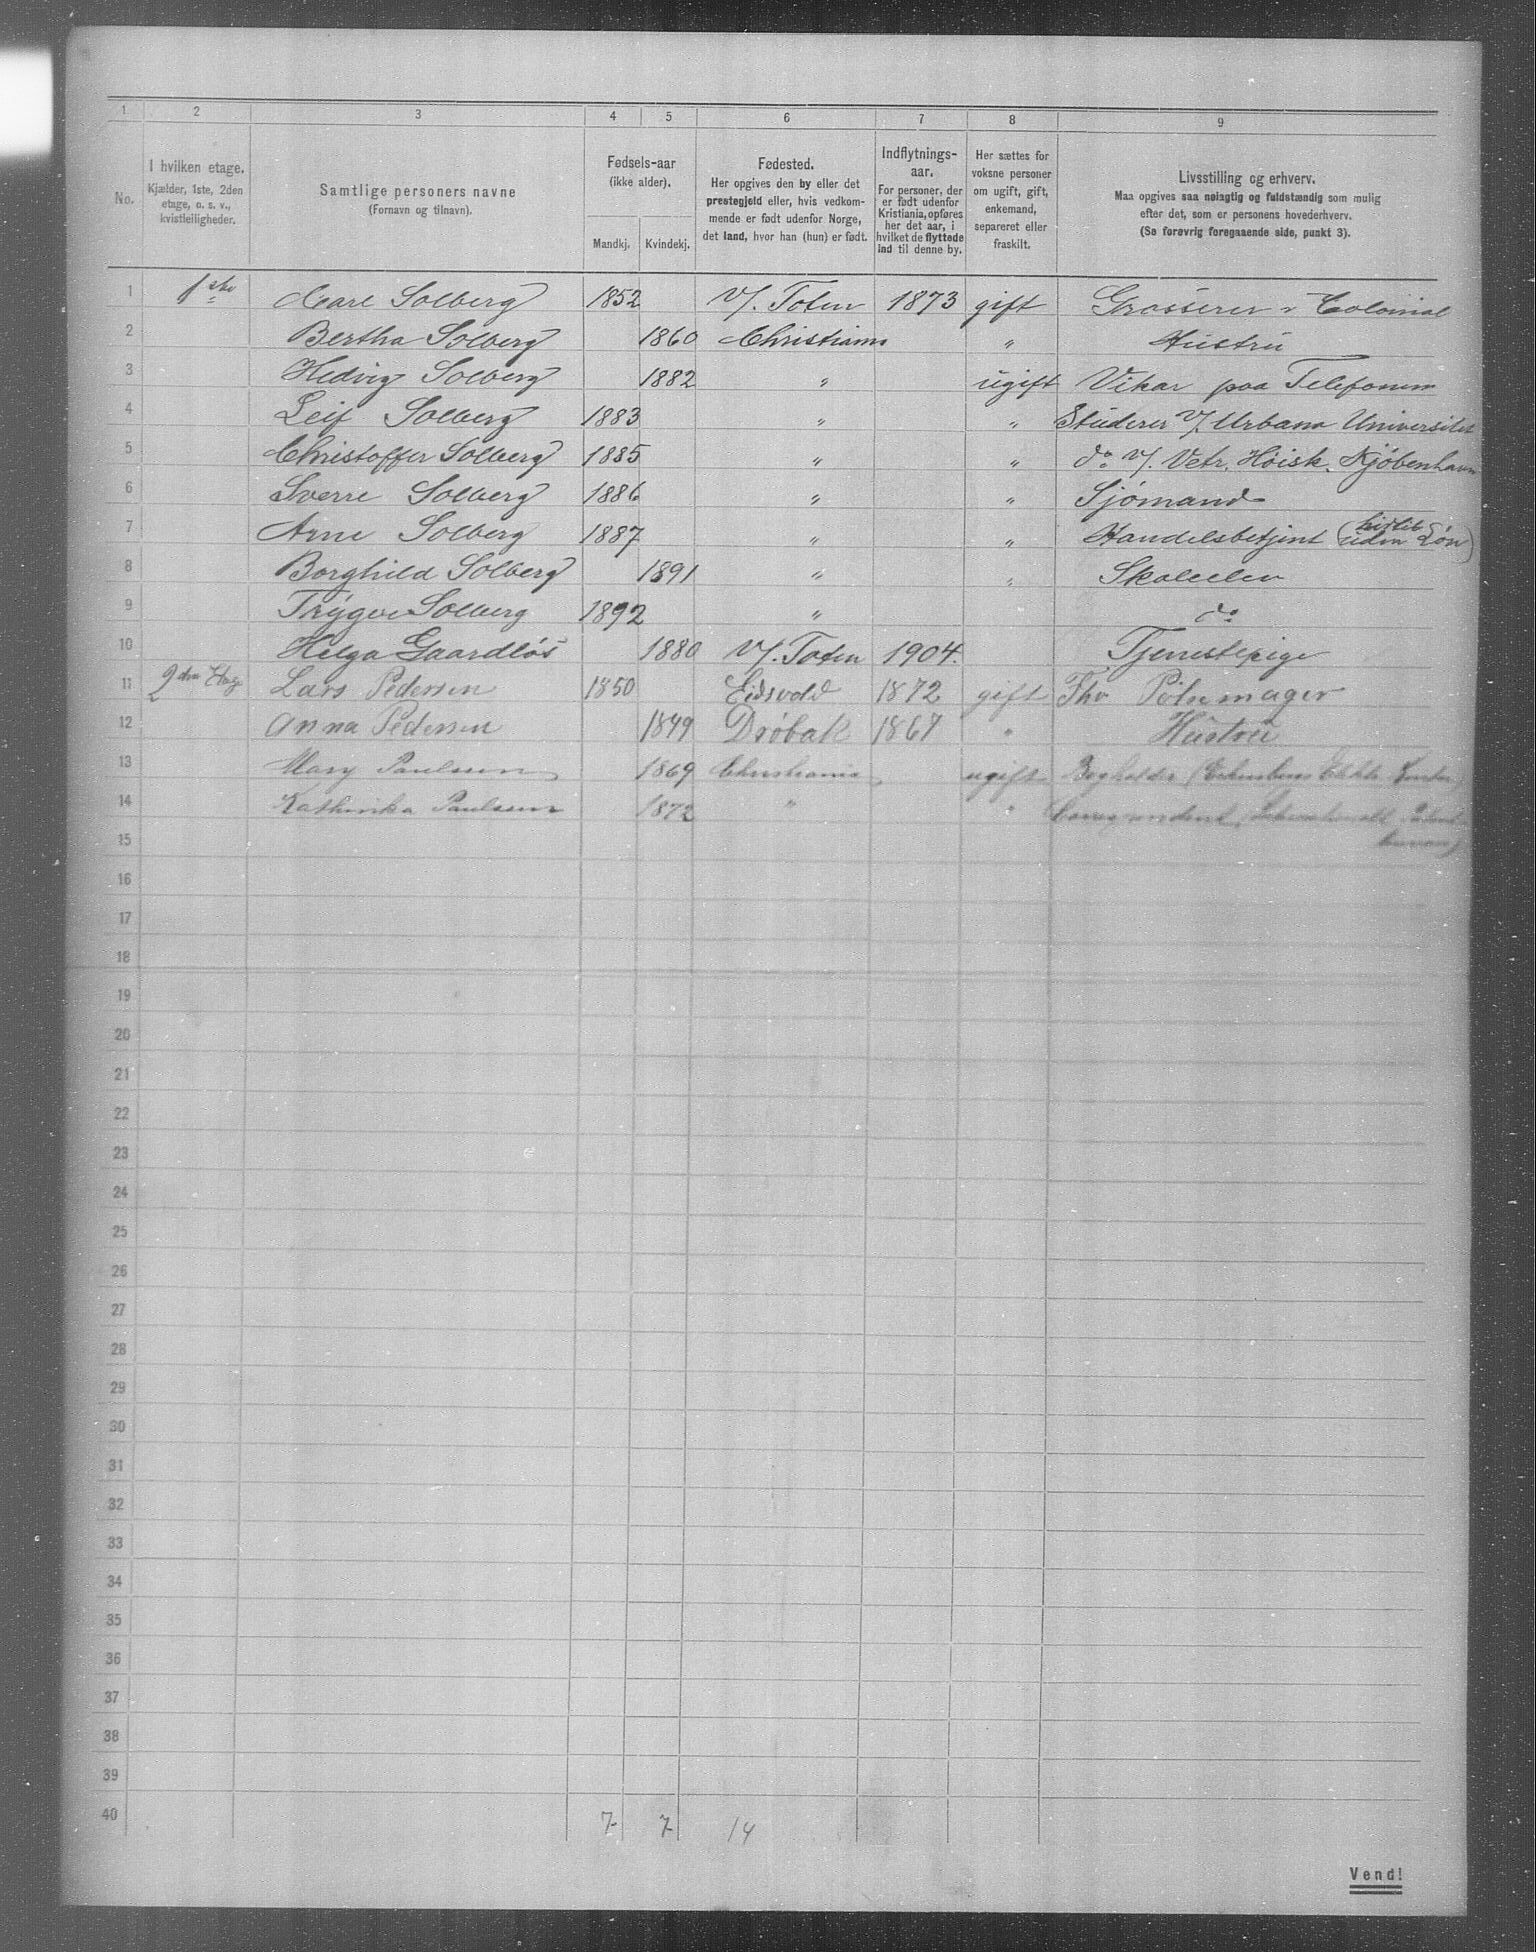 1 2 3 4 5 6 7 8 9
No.
I hvilken etage.
Kjælder, 1ste, 2den
etage, o. s. v.,
kvistleiligheder.
Samtlige personers navne
(Fornavn og tilnavn).
Fødsels-aar
(ikke alder).
Mandkj. Kvindekj.
Fødested.
Her opgives den by eller det
prestegjeld eller, hvis vedkom-
mende er født udenfor Norge,
det land, hvor han (hun) er født.
Indflytnings-
aar.
For personer, der
er født udenfor
Kristiania, opføres
her det aar, i
hvilket de flyttede
ind til denne by.
Her sættes for
voksne personer
om ugift, gift,
enkemand,
separeret eller
fraskilt.
Livsstilling og erhverv.
Maa opgives saa nøiagtig og fuldstændig som mulig
efter det, som er personens hovederhverv.
(Se forøvrig foregaaende side, punkt 3).
1 1ste Carl Solberg 1852 V/. Toten 1873 gift Grosserer Colonial
2 Bertha Solberg 1860 Christiania " Hustru
3 Hedvig Solberg 1882 " ugift Vikar paa Telefonen
4 Leif Solberg 1883 " " Studerer V/ Urbana Universitet
5 Christoffer Solberg 1885 " " do V/. Vetr. Høisk. Kjøbenhavn
6 Sverre Solberg 1886 " " Sjømand
7 Arne Solberg 1887 " " Handelsbetjent (hidtil uden Løn)
8 Borghild Solberg 1891 " " Skoleelev
9 Trygve Solberg 1892 " do
10 Helga Gaardløs 1880 V/. Toten 1904. Tjenestepige
11 2den Etage Lars Pedersen 1850 Eidsvold 1872 gift Thv Pølsemager
12 Anna Pedersen 1849 Drøbak 1867 " Hustru
13 Mary Paulsen 1869 Christiania ugift Bogholder
14 Kathinka Paulsen 1872 " "
15
16
17
18
19
20
21
22
23
24
25
26
27
28
29
30
31
32
33
34
35
36
37
38
39
40
7 7 14
Vend!